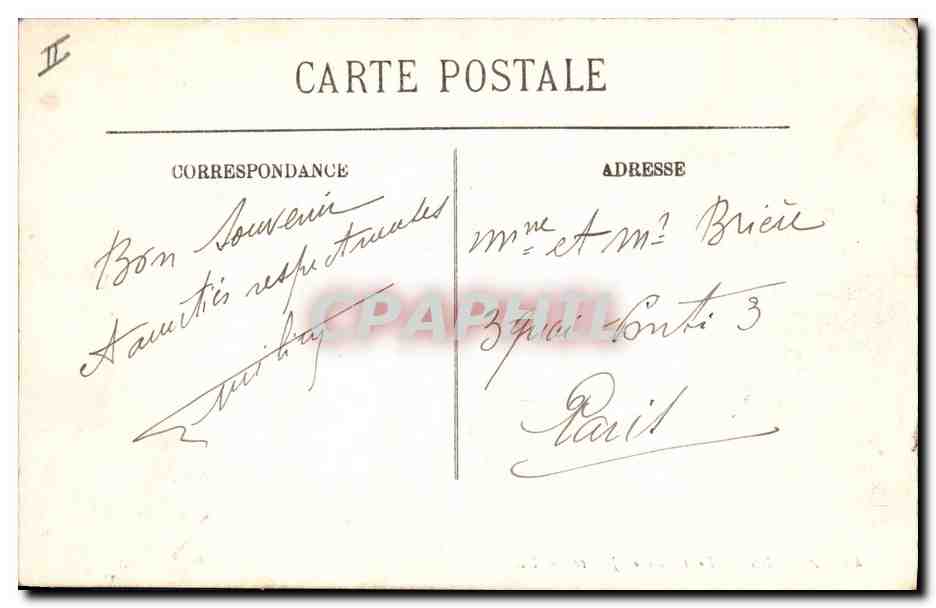 II
CARTE POSTALE
CORRESPONDANCE
Bon Souvenir
et amitiés respectueuses
ADRESSE
Mme et Mr Brière
3 quai Conti 3
Paris
CPAPHIL